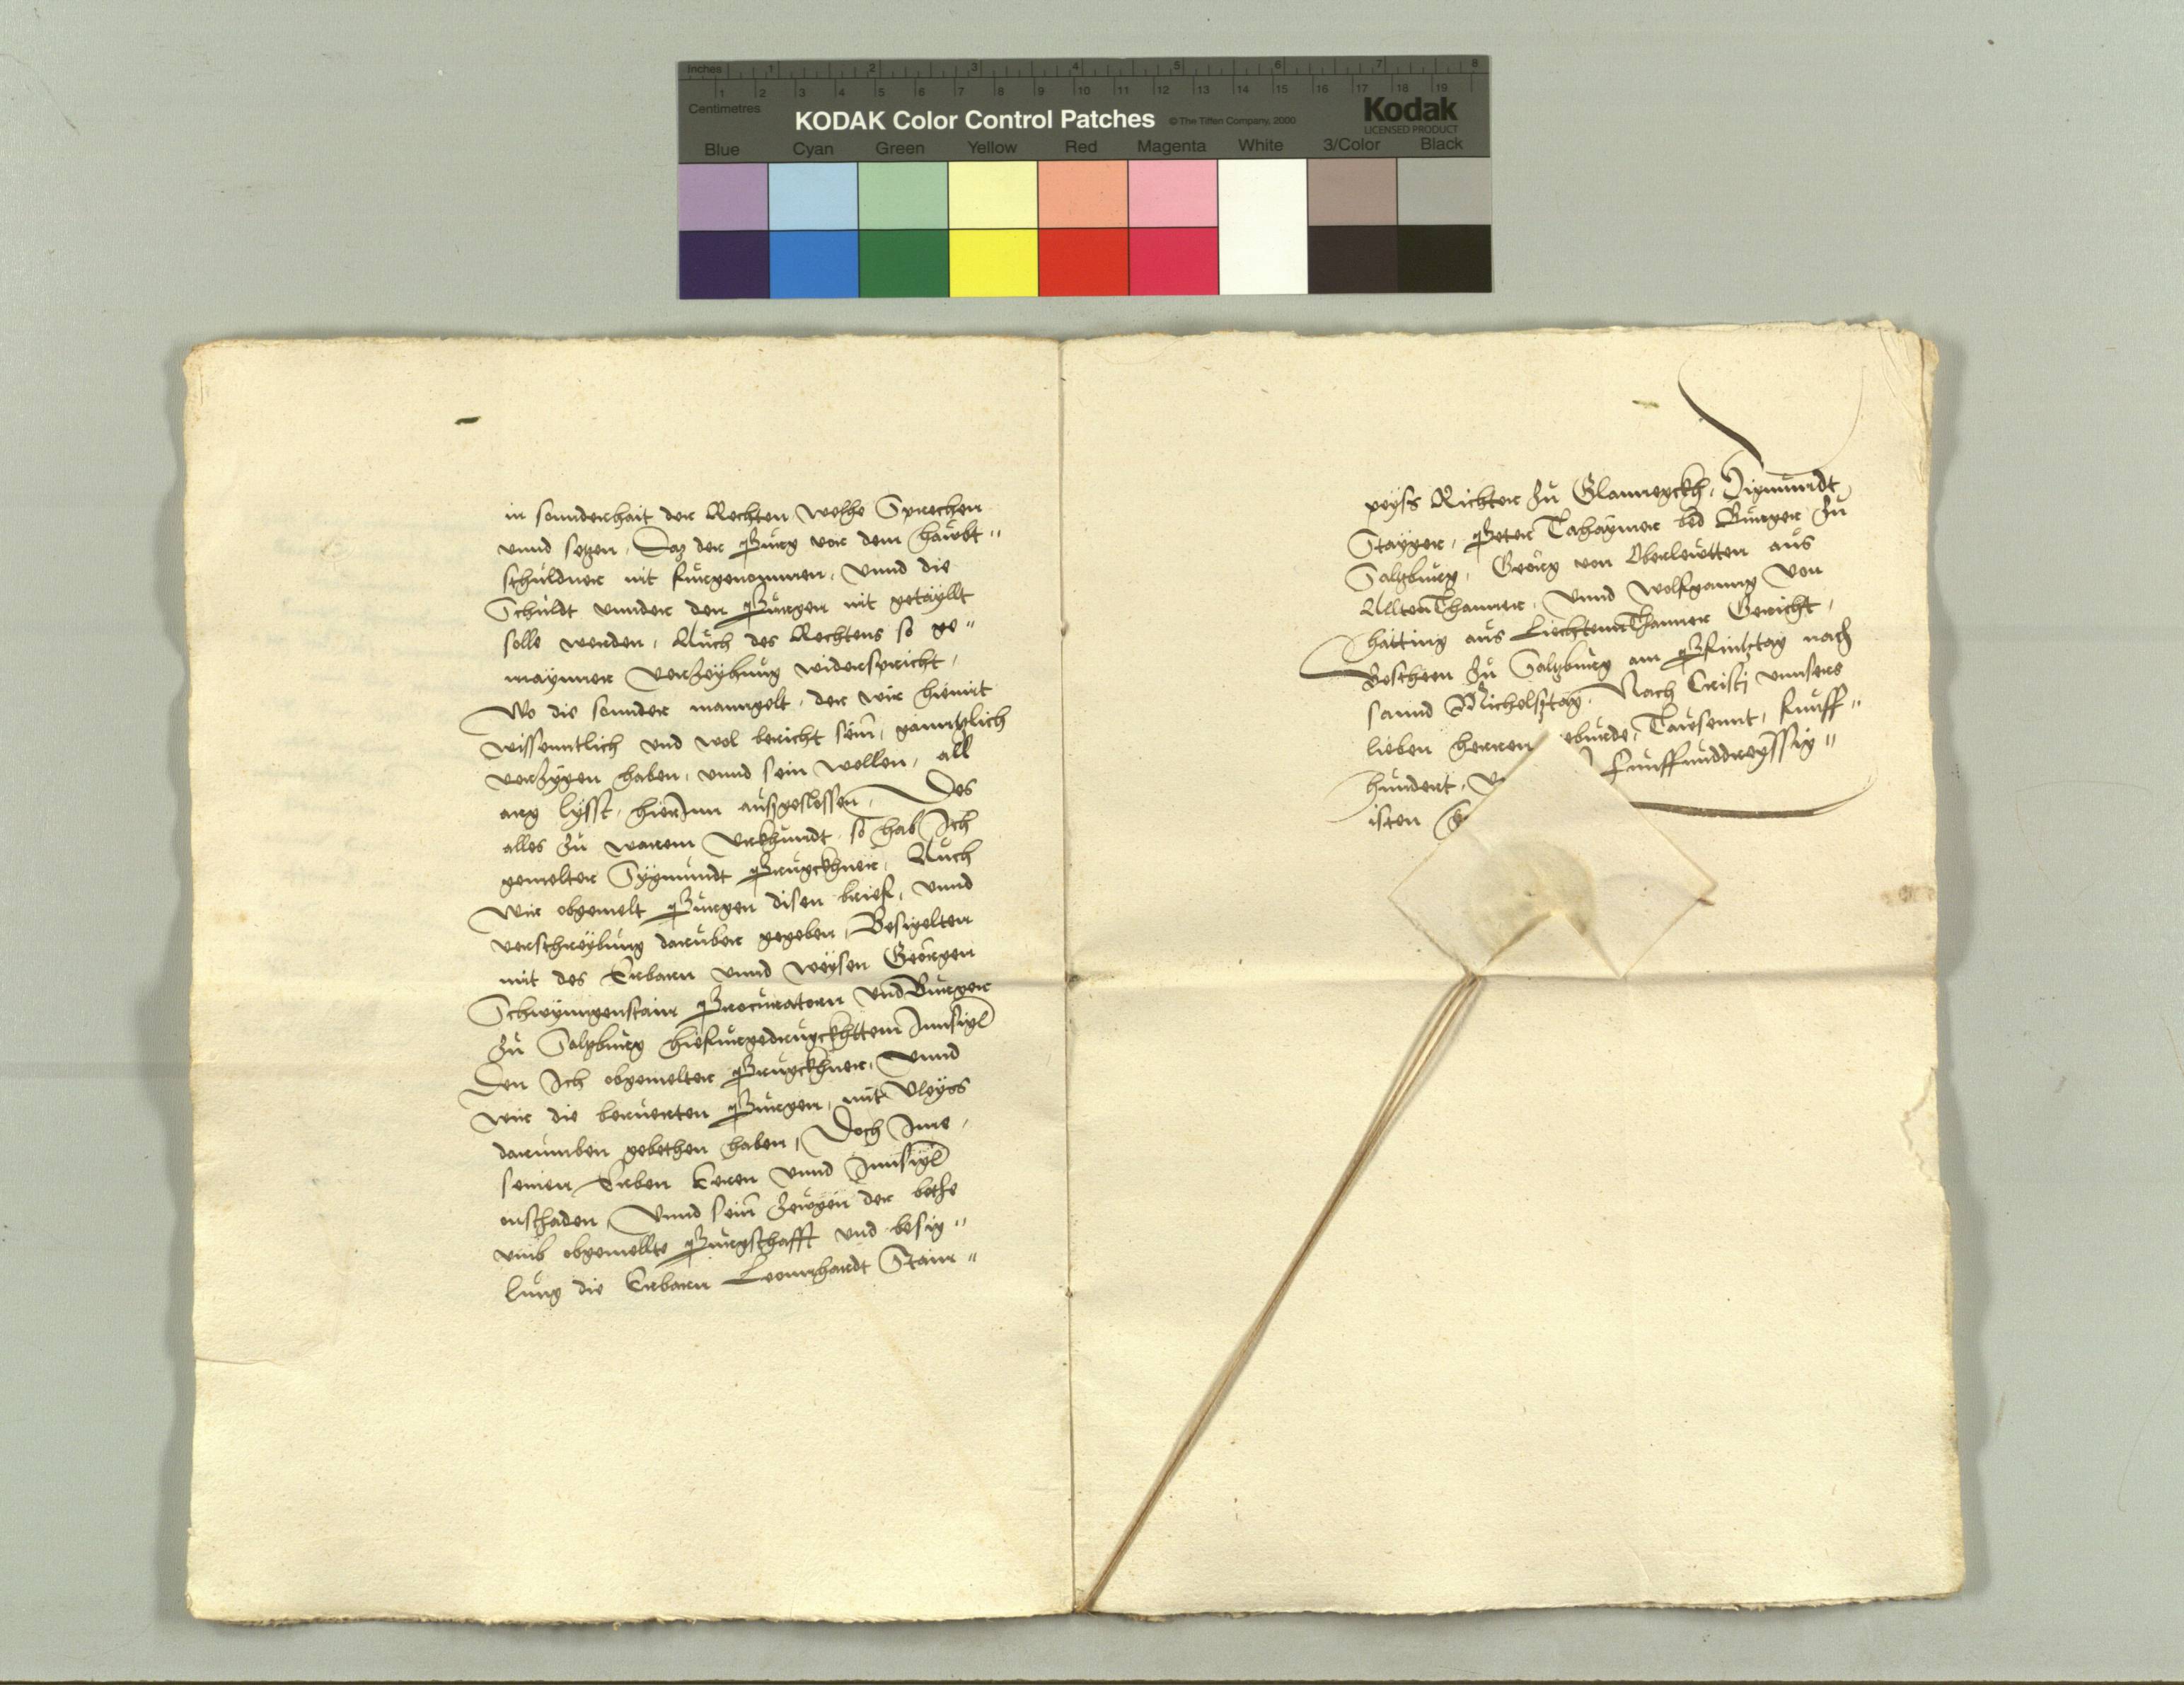 inches 1 2 3 4 5 6 7 8
1 2 3 4 5 6 7 8 9 10 11 12 13 14 15 16 17 18 19
Centimetres
KODAK Color Control Patches © The Tiffen Company, 2000 Kodak
LICENSED PRODUCT
Blue Cyan Green Yellow Red Magenta White 3/Color Black
in sonnderhait der Rechten welhe Sprechen
vnnd setzen, Daz der Pürg vor dem haẅbt"
schuldner nit fürgenommen, vnnd die
Schuldt vnnder den Pürgen nit getayllt
solle werden, Auch des Rechtens so ge"
maynner verzeyhung widerspricht,
Wo die sonnder manngelt, der wir hiemit
wissenntlich vnd wol bericht sein, ganntzlich
verzygen haben, vnnd sein wellen, all
arg lysst, hierJnn außgeslossen, Des
alles zu warem Vrkhundt, so hab Jch
gemelter Sygmundt Prugckhner, Auch
Wir obgemelt Pürgen disen brief, vnnd
verschreybung daruber gegeben, Besigelten
mit des Erbarn vnnd weysen Geörgen
Procuratorn vnd Burger
zu Saltzburg hiefürgedrugckhttem Jnnsigl
Den Jch obgemelter Prugckhner, vnnd
wir die beruerten Pürgen, mit Vleyss
darumben gebethen haben, Doch Jme,
seinen Erben vnnd Jnnsigl
onschaden, Vnnd sein Zewgen der bethe
vmb obgemellte Pürgschafft vnd besig"
lung die Erbarn Leonnhardt Stain"
peyss Richter zu Glanneyckh, Sigmundt
Stayger, Peter Burger zu
Saltzburg, Geörg von Oberlewtten aus
AlltenThanner, Vnnd Wolfganng von
hätting aus LiechtennThanner Gericht,
Beschehen zu Saltzburg am Pfintztag nach
sannd Michelstag, Nach Cristj vnnsers
lieben herren eburde, Tawsennt, funff"
hundert, v funffunddreyssig"
isten